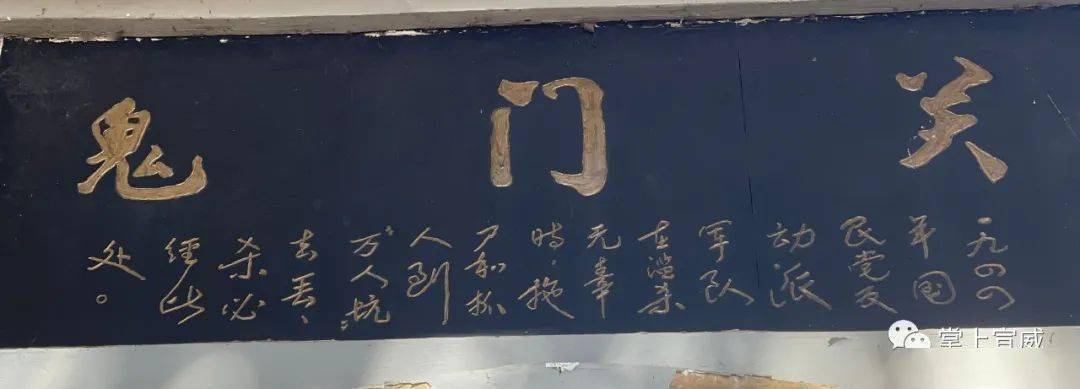 鬼门关
一九四四
年国
民党反
动派
军队
在滥杀
无辜
時，拖
尸和抓
人到
万人坑
去丢、
杀必
经此
处。
掌上宣威